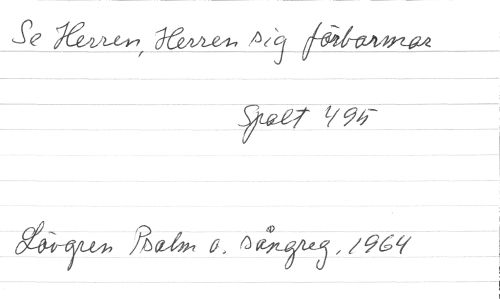 Se Herren, Herren sig förbarmar
Spalt 495
Lövgren Psalm o. sångreg. 1964